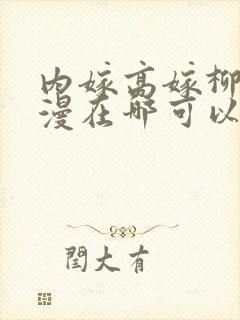 内嫁高嫁柳
漫在哪可以
閏大有